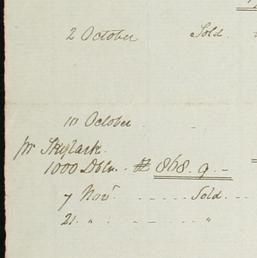 2 October Sold.
10 October
pr Skylark.
1000 Dbls. 868. 9. -
7 Novr. - - - - - Sold. - -
21. " - - - - - "